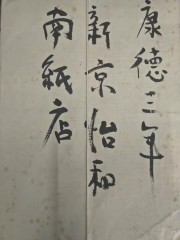 康德三年
新京怡和
南紙店